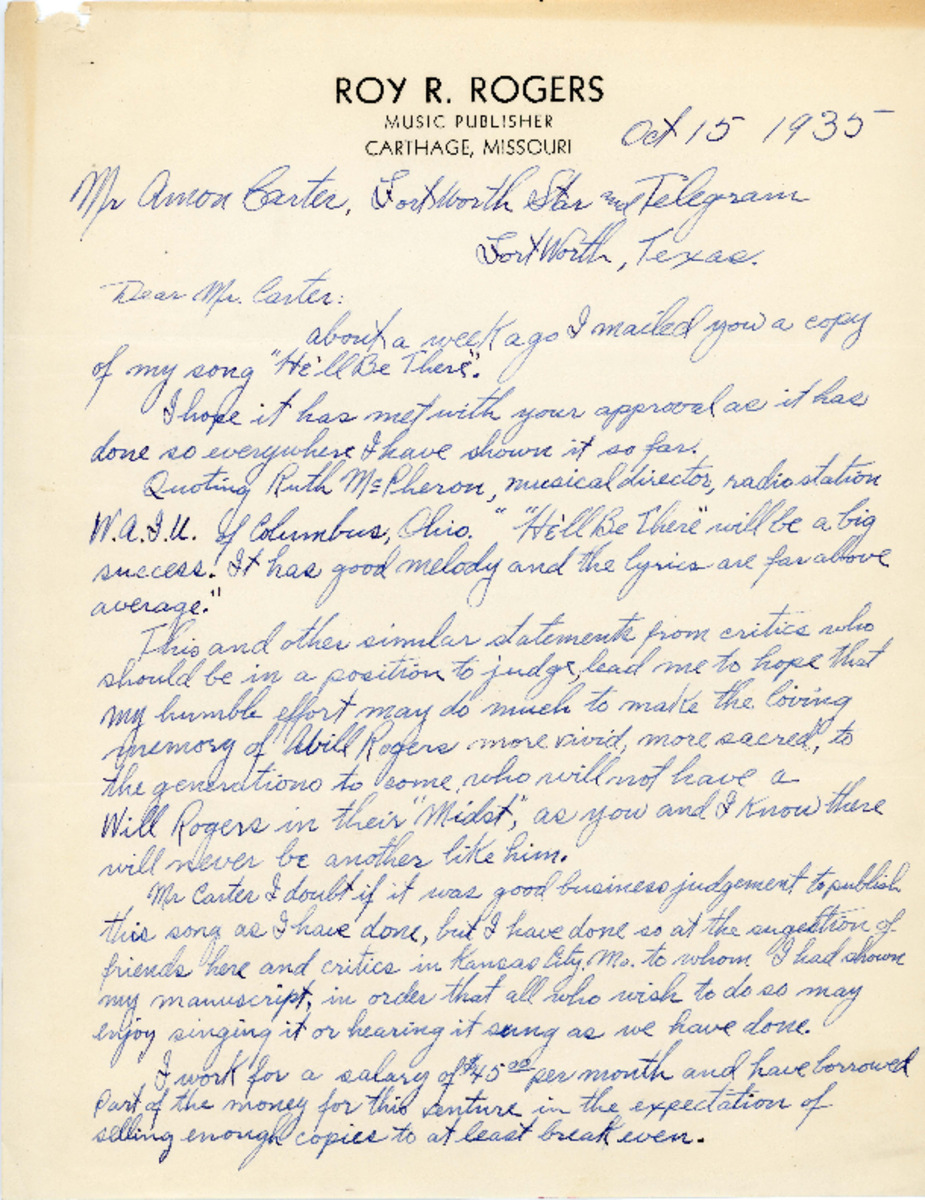 ROY R. ROGERS
MUSIC PUBLISHER
CARTHAGE, MISSOURI
Oct 15 1935
Mr Amon Carter, Fort Worth Star and Telegram
Fort Worth, Texas.
Dear Mr. Carter:
about a week ago I mailed you a copy
of my song "He'll Be There".
I hope it has met with your approval as it has
done so everywhere I have shown it so far.
Quoting Ruth McPheron, musical director, radio station
W.A.I.U. of Columbus, Ohio. " "He'll Be There" will be a big
success. It has good melody and the lyrics are far above
average."
This and other similar statements from critics who
should be in a position to judge, lead me to hope that
my humble effort may do much to make the loving
memory of Will Rogers more vivid, more sacred, to
the generations to come, who will not have a
Will Rogers in their "Midst", as you and I know there
will never be another like him.
Mr Carter I doubt if it was good business judgement to publish
this song as I have done, but I have done so at the sugestion of
friends here and critics in Kansas City, Mo. to whom I had shown
my manuscript, in order that all who wish to do so may
enjoy singing it or hearing it sung as we have done.
I work for a salary of $45.00 per month and have borrowed
part of the money for this venture in the expectation of
selling enough copies to at least break even.